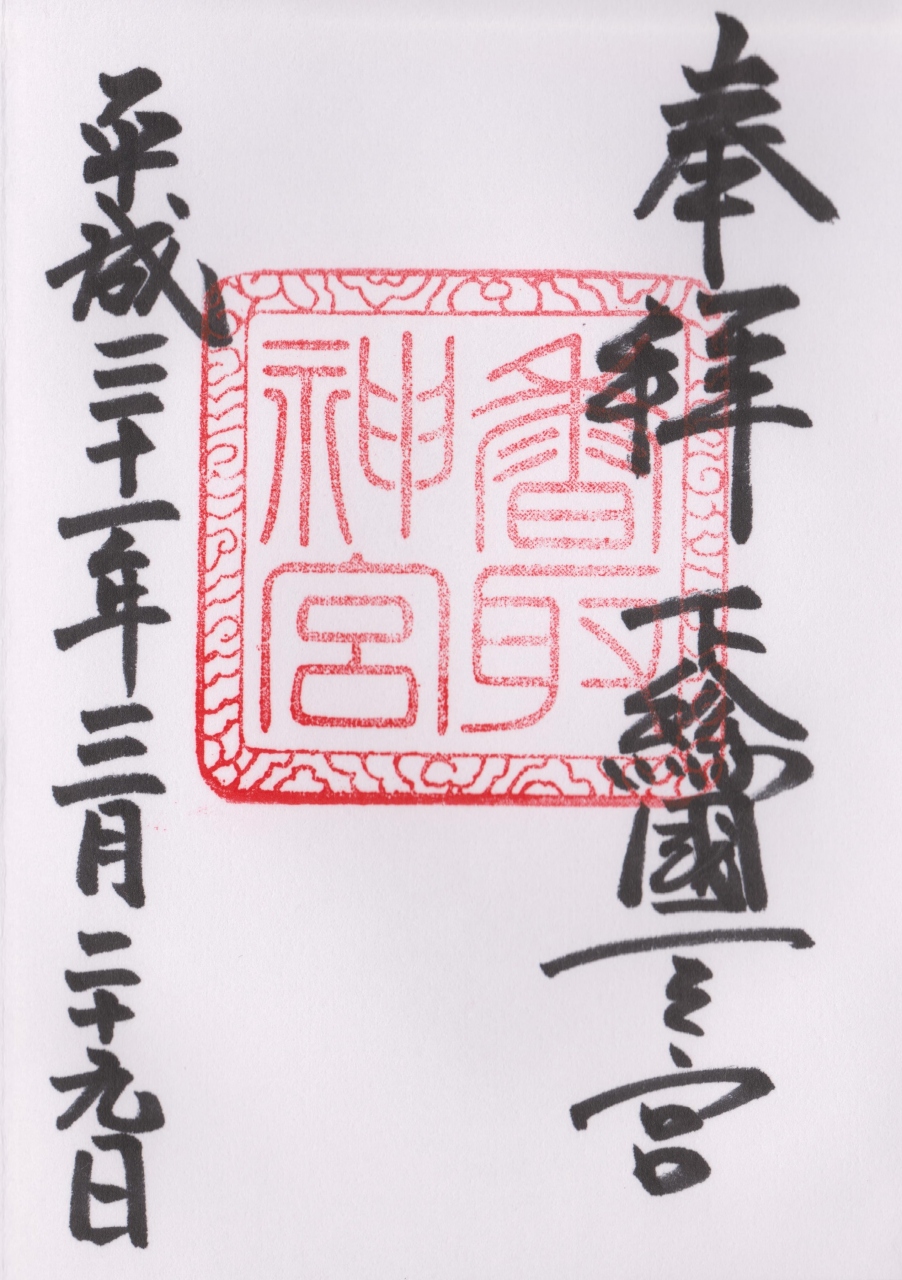 奉拝 下総國一之宮
香取
神宮
平成二十一年三月二十九日